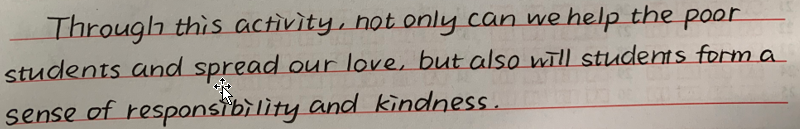 Through this activity, not only can we help the poor
students and spread our love, but also will students form a
sense of responsibility and kindness.